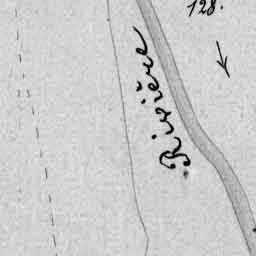 128.
Rivière